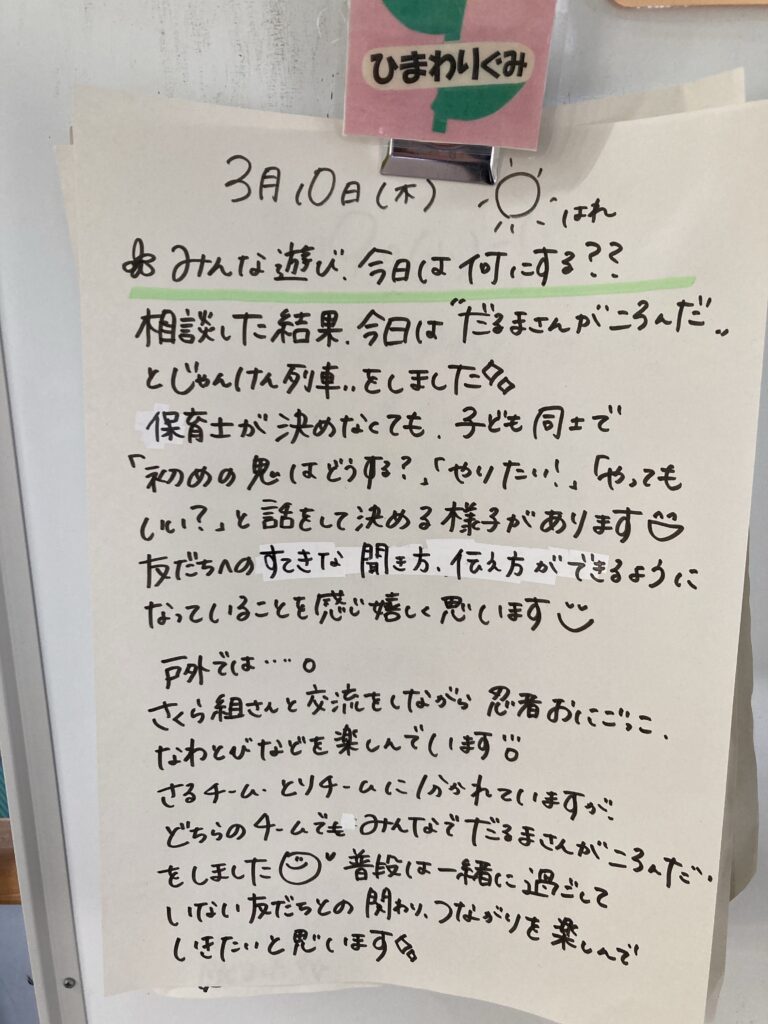 ひまわりぐみ
3月10日(木) はれ
みんな遊び、今日は何にする??
相談した結果、今日は"だるまさんがころんだ"
とじゃんけん列車..をしました
保育士が決めなくても、子ども同士で
「初めの鬼はどうする?」「やりたい!」「やっても
いい?」と話をして決める様子があります
友だちへのすてきな聞き方、伝え方ができるように
なっていることを感じ嬉しく思います
戸外では…。
さくら組さんと交流をしながら忍者おにごっこ、
なわとびなどを楽しんでいます
さるチーム・とりチームに分かれていますが、
どちらのチームでもみんなでだるまさんがころんだ
をしました 普段は一緒に過ごして
いない友だちとの関わり、つながりを楽しんで
いきたいと思います